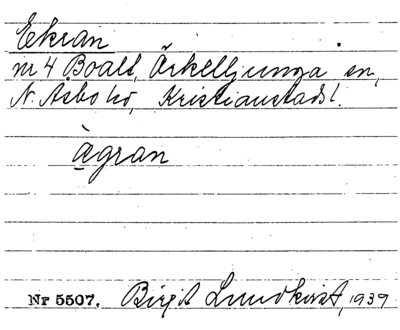 Ekran
nr 4 Boalt, Örkelljunga sn,
N. Åsbo hd, Kristianstads l.
àgran
Nr 5507. Birgit Lundkvist, 1939